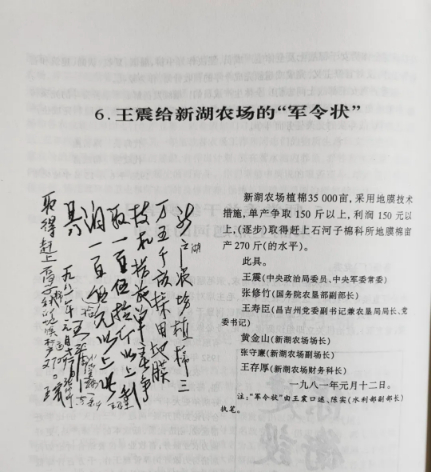 6.王震给新湖农场的“军令状”
新湖农场植棉三
万五千亩采用地膜
技术措施单产争
取一百伍拾斤以上利
润一百伍元以上
取得赶上
新湖农场植棉35 000亩,采用地膜技术
措施,单产争取150斤以上,利润150元以
上,(逐步)取得赶上石河子棉科所地膜棉亩
产270斤(的水平)。
此具。
王震(中央政治局委员、中央军委常委)
张修竹(国务院农垦部副部长)
王寿臣(昌吉州党委副书记兼农垦局局长、党
委书记)
黄金山(新湖农场场长)
张守廉(新湖农场副场长)
王存厚(新湖农场财务科长)
一九八一年元月十二日。
注:“军令状”由王震口述,陈实(水利部副部长)
执笔。